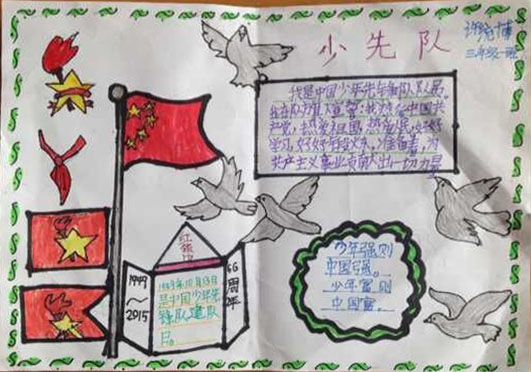 少先队
三年级一班
我是中国少年先锋队队员。
在队旗下宣誓:我热爱中国共
产党,热爱祖国,热爱人民,好好
学习,好好锻炼,准备着,为
共产主义事业贡献出一切力量
红领巾
1949
~
2015
1949年10月13日
是中国少年先
锋队建队
日。
66周年
少年强则
中国强。
少年富则
中国富。